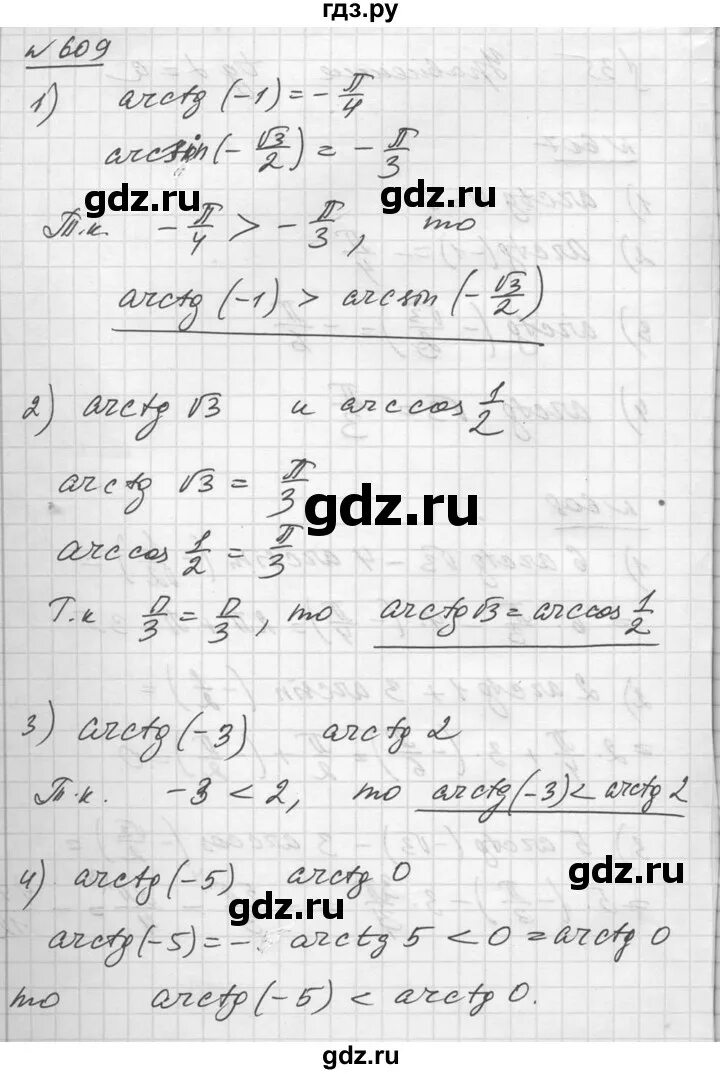 гдз.ру
№609
1) arctg (-1) = -π/4
arcsin(-√3/2) = -π/3
gdz.ru gdz.ru
Т.к. -π/4 > -π/3, то
arctg (-1) > arcsin (-√3/2)
2) arctg √3 и arccos 1/2
arctg √3 = π/3
gdz.ru
arccos 1/2 = π/3
Т.к π/3 = π/3, то arctg √3 = arccos 1/2
gdz.ru
3) arctg (-3) arctg 2
gdz.ru
Т.к. -3 < 2, то arctg(-3) < arctg 2
4) arctg (-5) arctg 0
gdz.ru
gdz.ru
arctg (-5) = - arctg 5 < 0 = arctg 0
то arctg (-5) < arctg 0.
gdz.ru